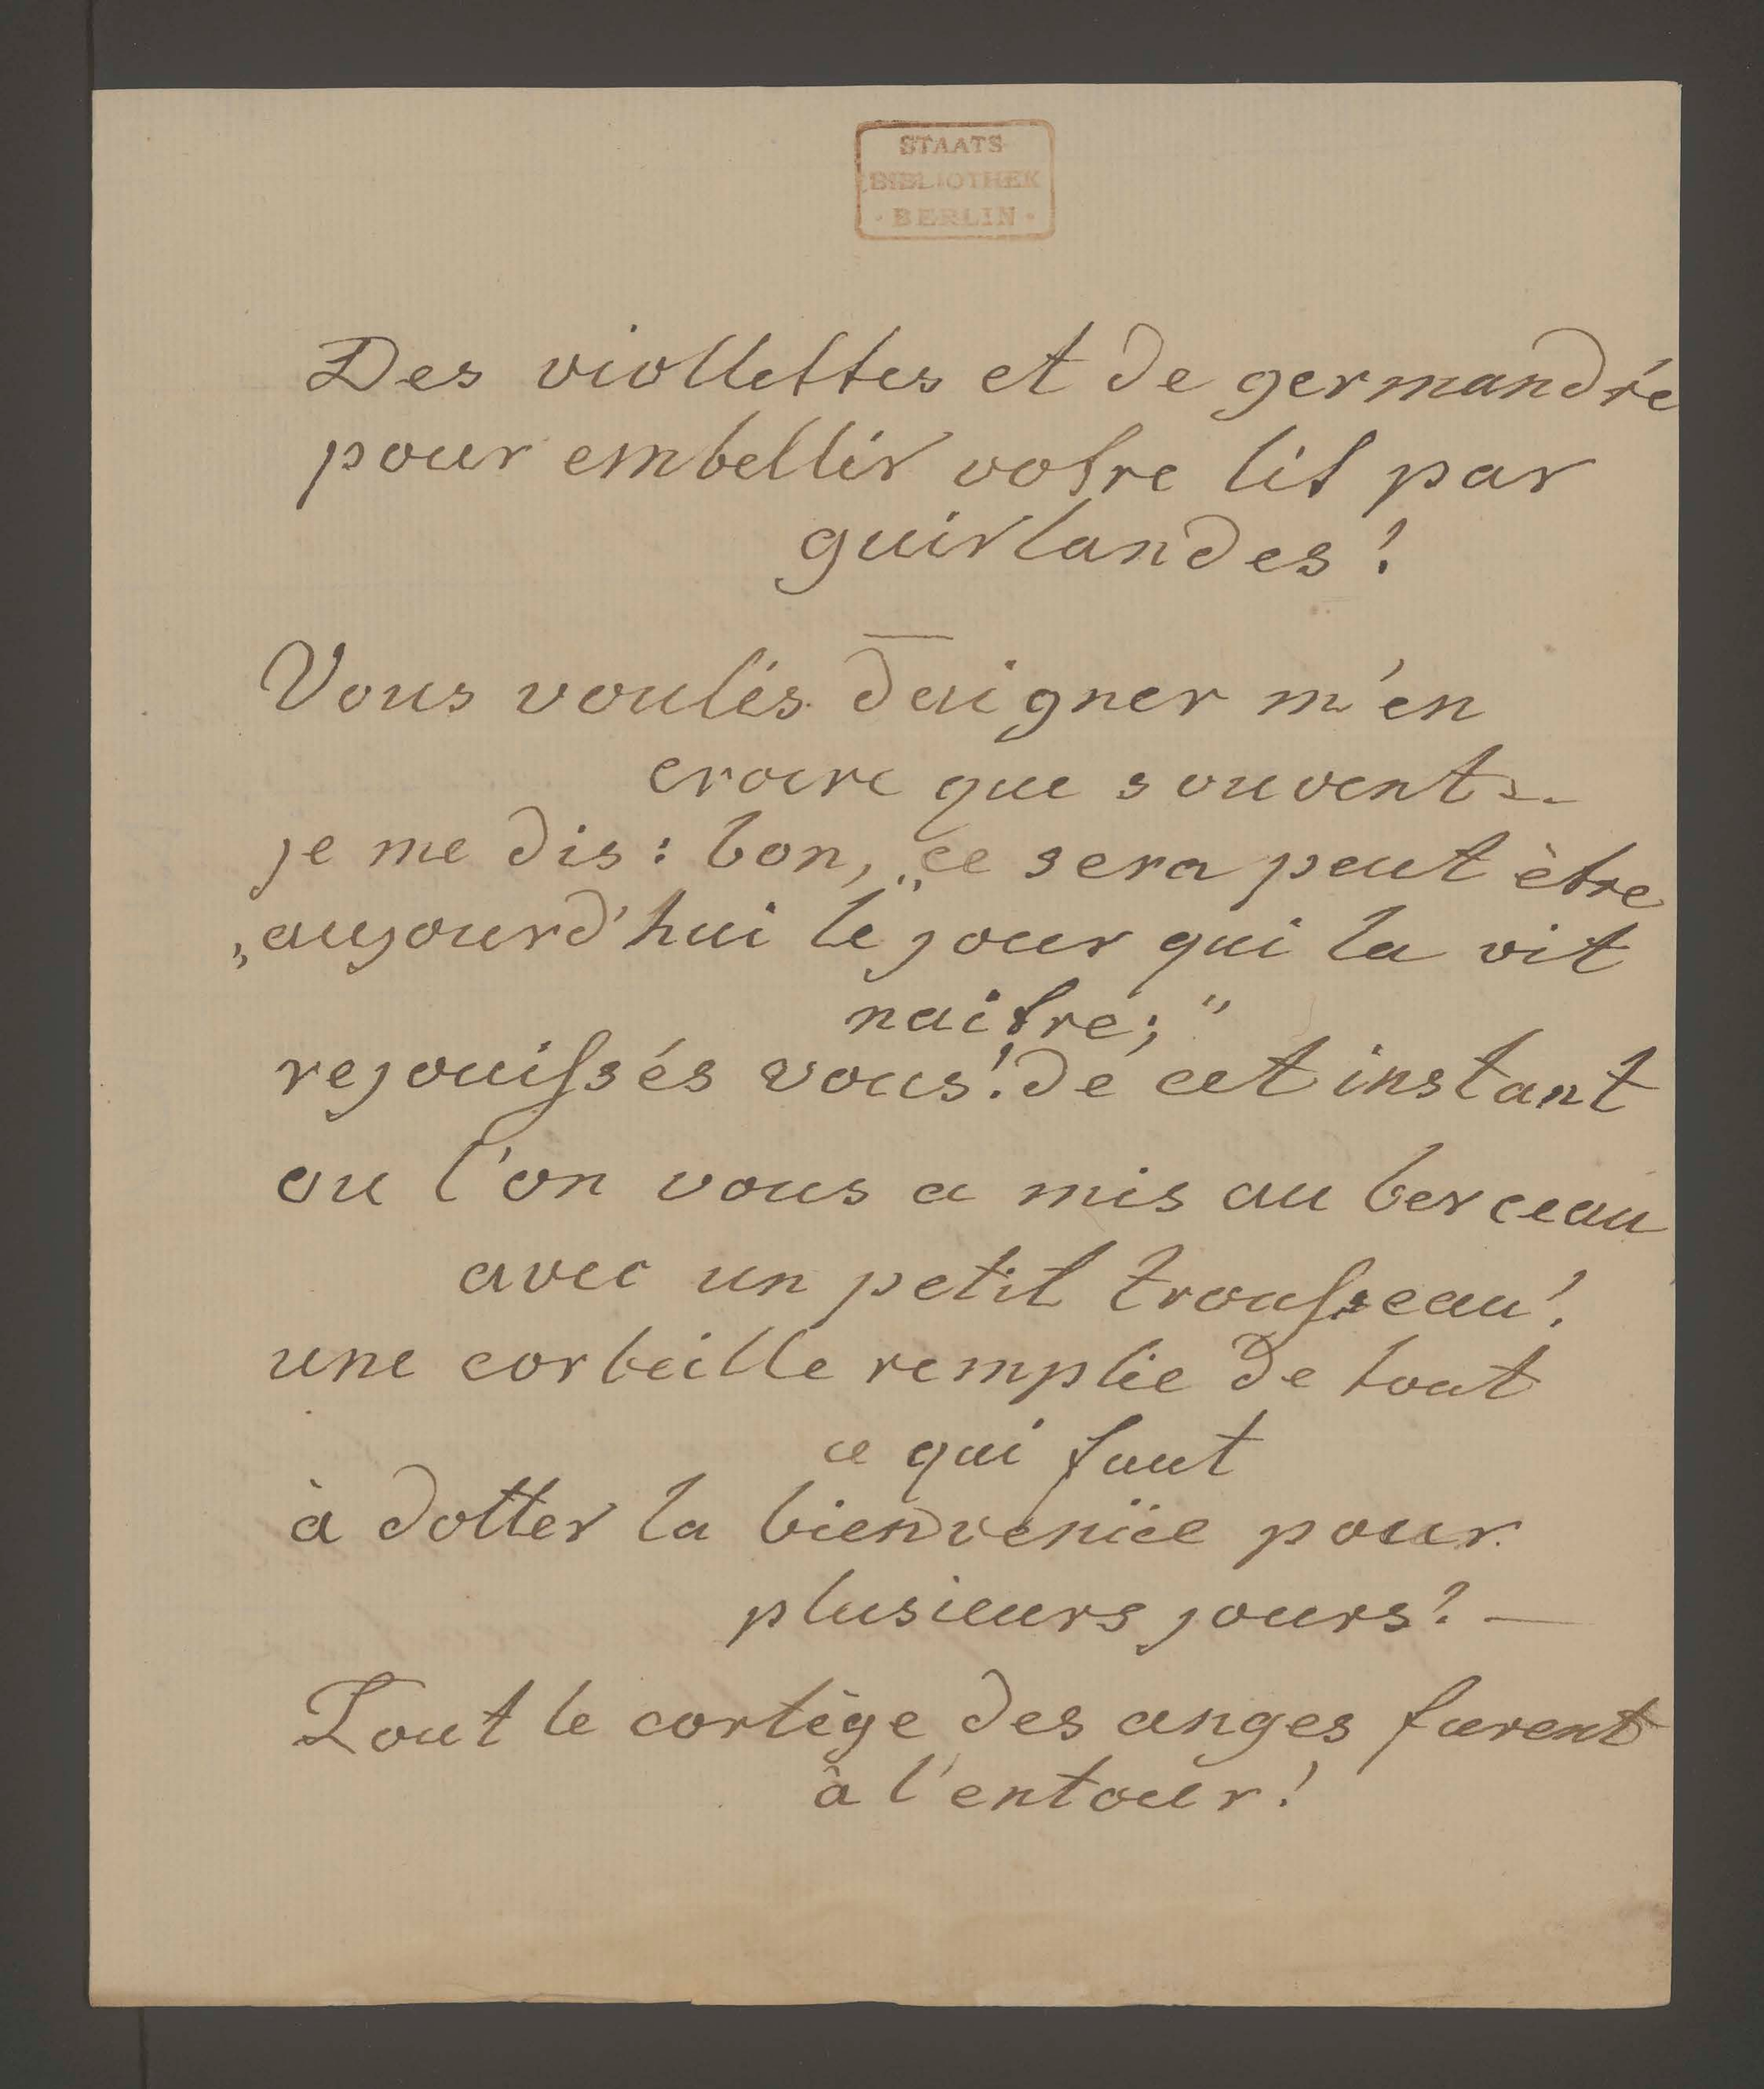 STAATS
BIBLIOTHEK
· BERLIN ·
Des viollettes et de germandrée
pour embellir votre lit par
guirlandes!
Vous voulés daigner m'en
croire que souvent
je me dis: bon, „ce sera peut être
„aujourd'hui le jour qui la vit
naitre;"
rejouiſsés vous! de cet instant
ou l'on vous a mis au berceau
avec un petit trouſseau!
une corbeille remplie de tout
ce qui faut
à dotter la bienvenüe pour
plusieurs jours! —
Tout le cortège des anges furent
à l'entour!